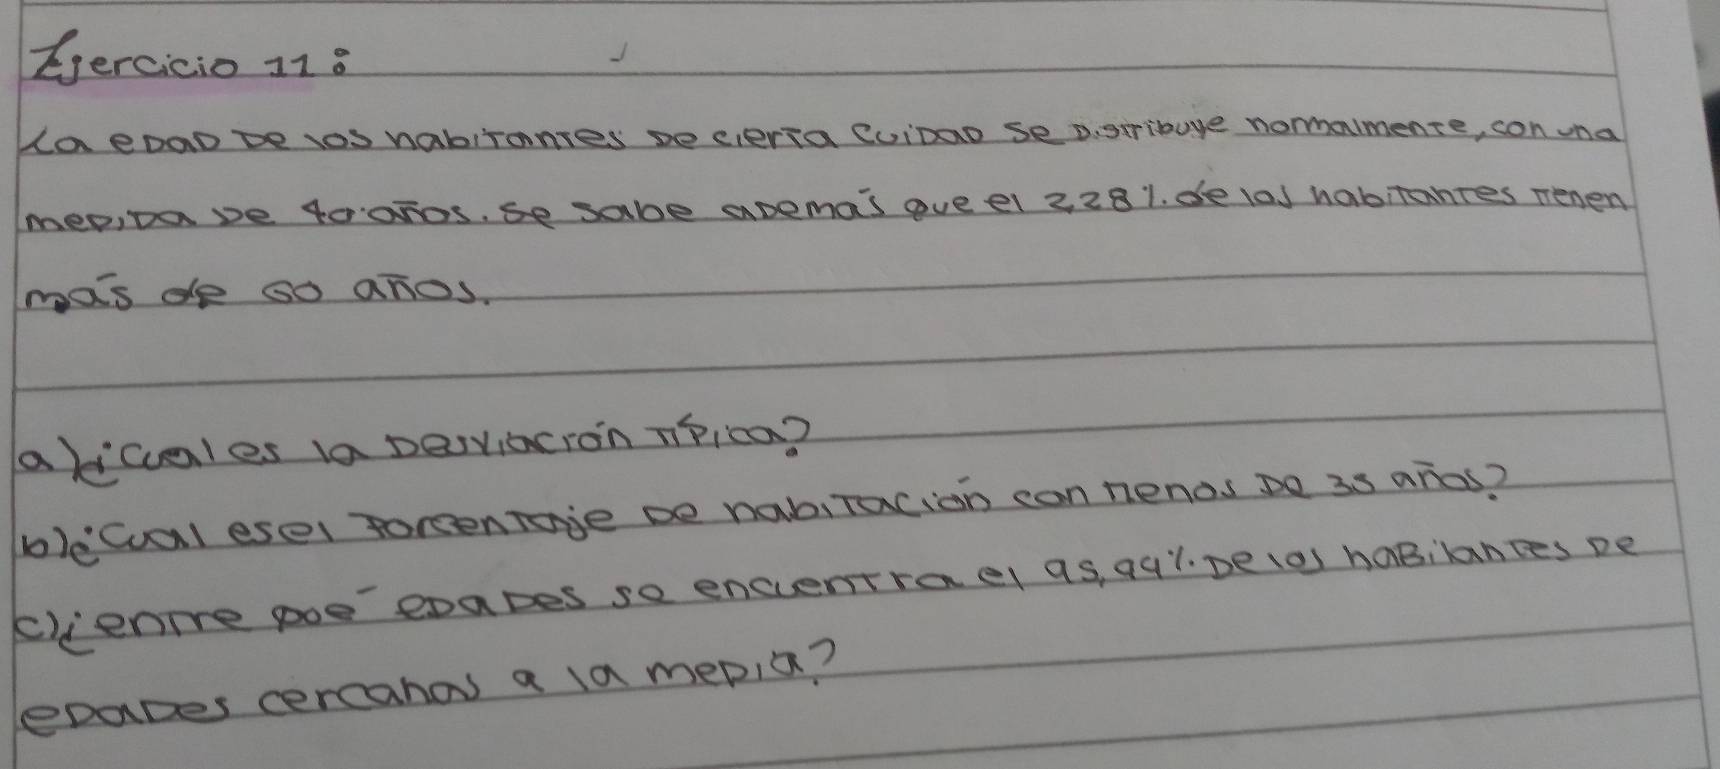 Ejercicio 11:
La edad de los habitantes de cierta cuidad se distribuye normalmente, con una
medida de 40 años. se sabe además que el 2,28%. de las habitantes tienen
más de 50 años.
a) ¿cuales la desviación típica?
b) ¿cual es el porcentaje de habitación con menos de 35 años?
c) ¿entre qué edades se encuentra el 95,99%. de los habitantes de
edades cercanas a la media?